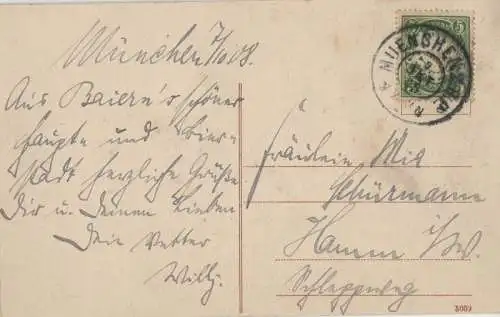 München 7/10 08.
Aus Baiern's schöner
Haupt und Bier-
stadt herzliche Grüße
Dir u. Deinen Lieben
Dein Vetter
Willy.
5
MUENCHEN
Fräulein
Schürmann
Hamm i/W.
Schleppweg
5059